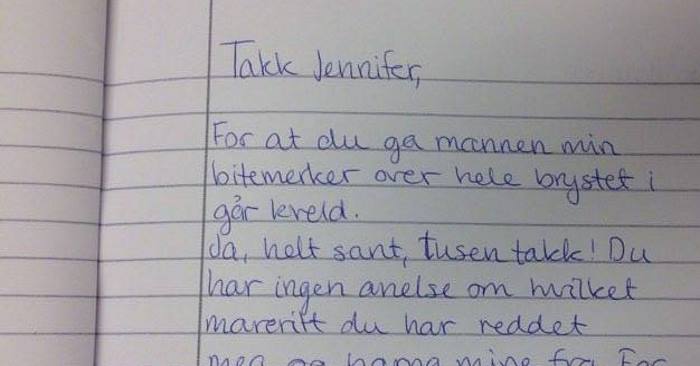 Takk Jennifer,
For at du ga mannen min
bitemerker over hele brystet i
går kveld.
Ja, helt sant, tusen takk! Du
har ingen anelse om hvilket
mareritt du har reddet
meg og barna mine fra. For